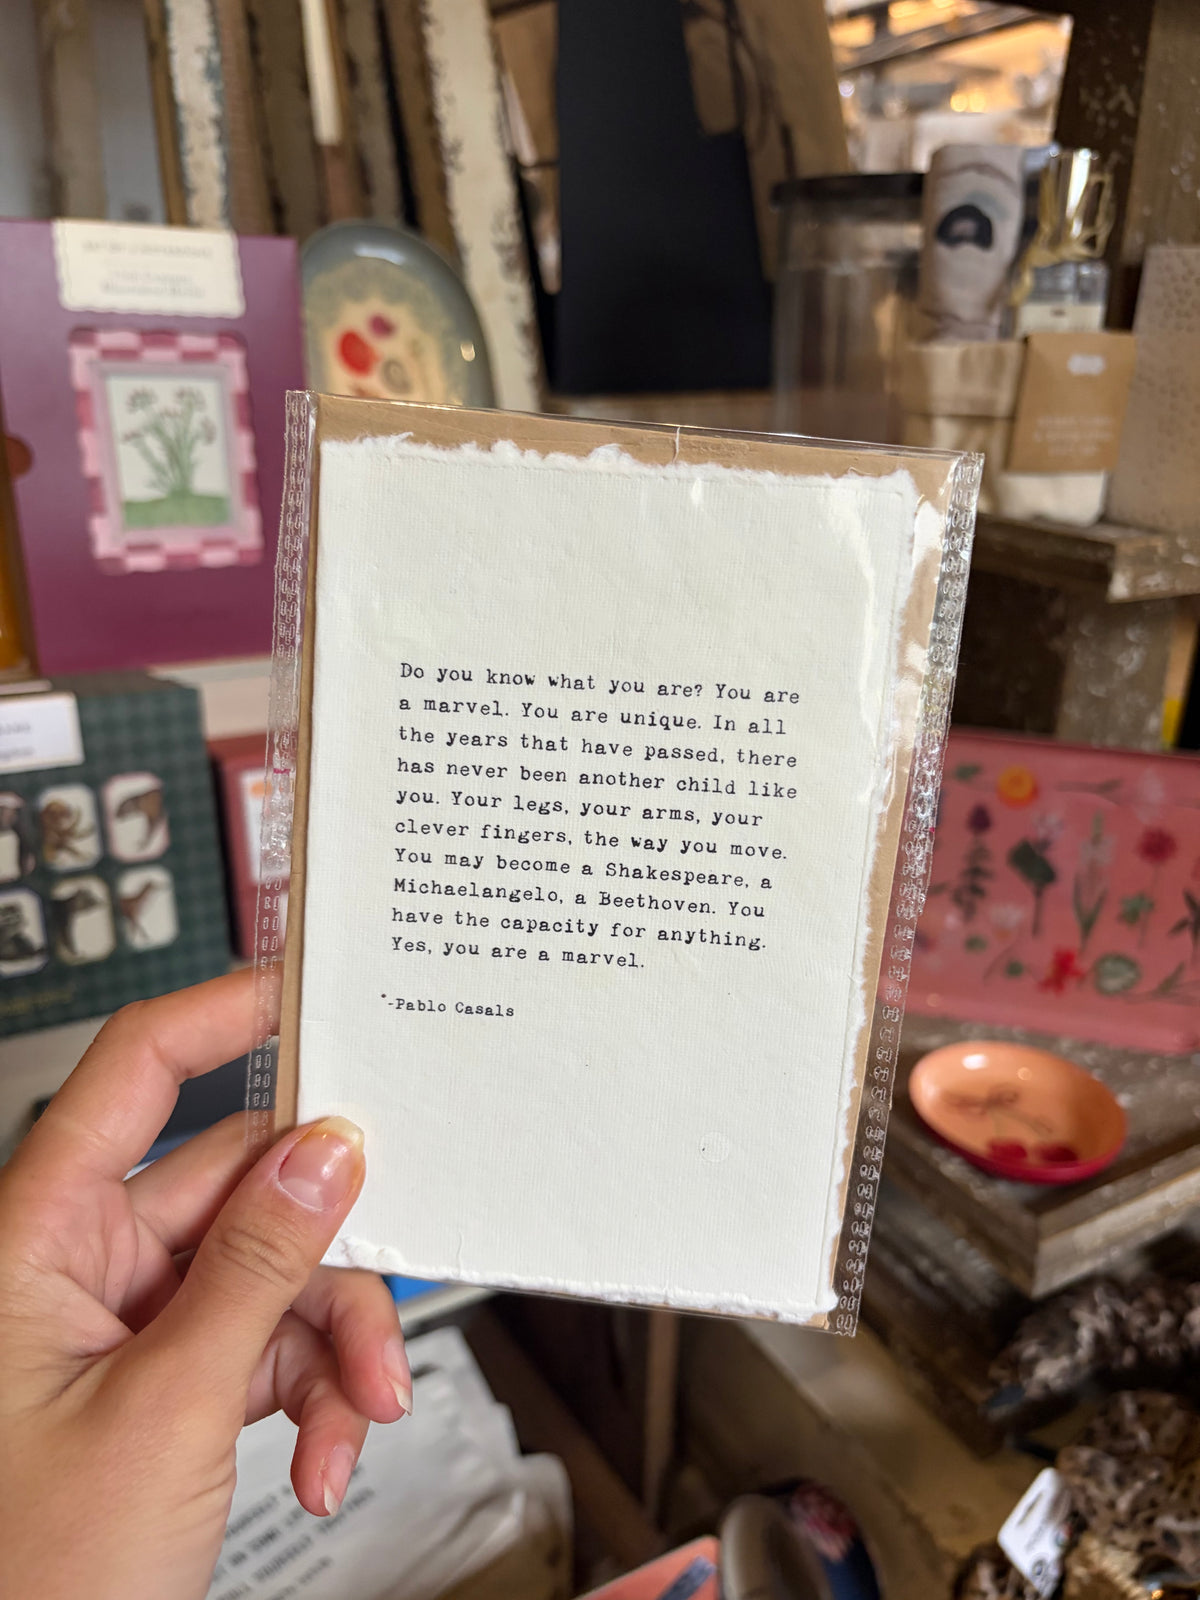 Do you know what you are? You are
a marvel. You are unique. In all
the years that have passed, there
has never been another child like
you. Your legs, your arms, your
clever fingers, the way you move.
You may become a Shakespeare, a
Michaelangelo, a Beethoven. You
have the capacity for anything.
Yes, you are a marvel.
-Pablo Casals